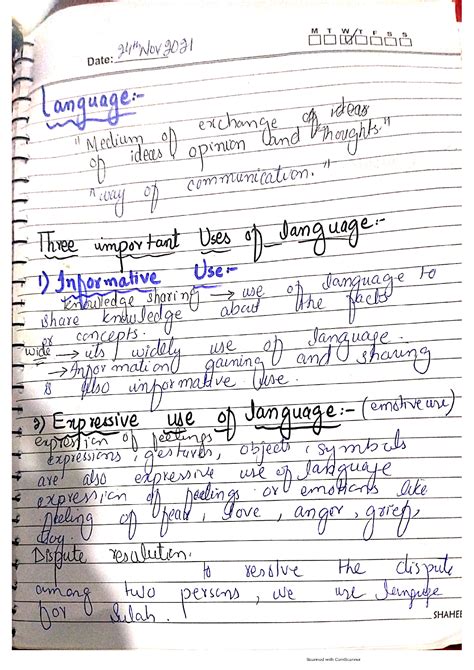 M T W T F S S
Date: 24th Nov 2021
Language:-
"Medium of exchange of ideas
of ideas, opinion and thoughts."
"way of communication."
Three important Uses of language:-
1) Informative Use:-
knowledge sharing → use of language to
share knowledge about the facts
or concepts.
wide → its widely use of language.
→ Information gaining and sharing
is also informative use.
2) Expressive use of language:- (emotive use)
expression of feelings
expressions, gestures, objects, symbols
are also expressive use of language
expression of feelings or emotions like
feeling of fear, love, anger, grief,
Dispute resolution.
to resolve the dispute
among two persons, we use language
for Sulah.
SHAHEE
Scanned with CamScanner